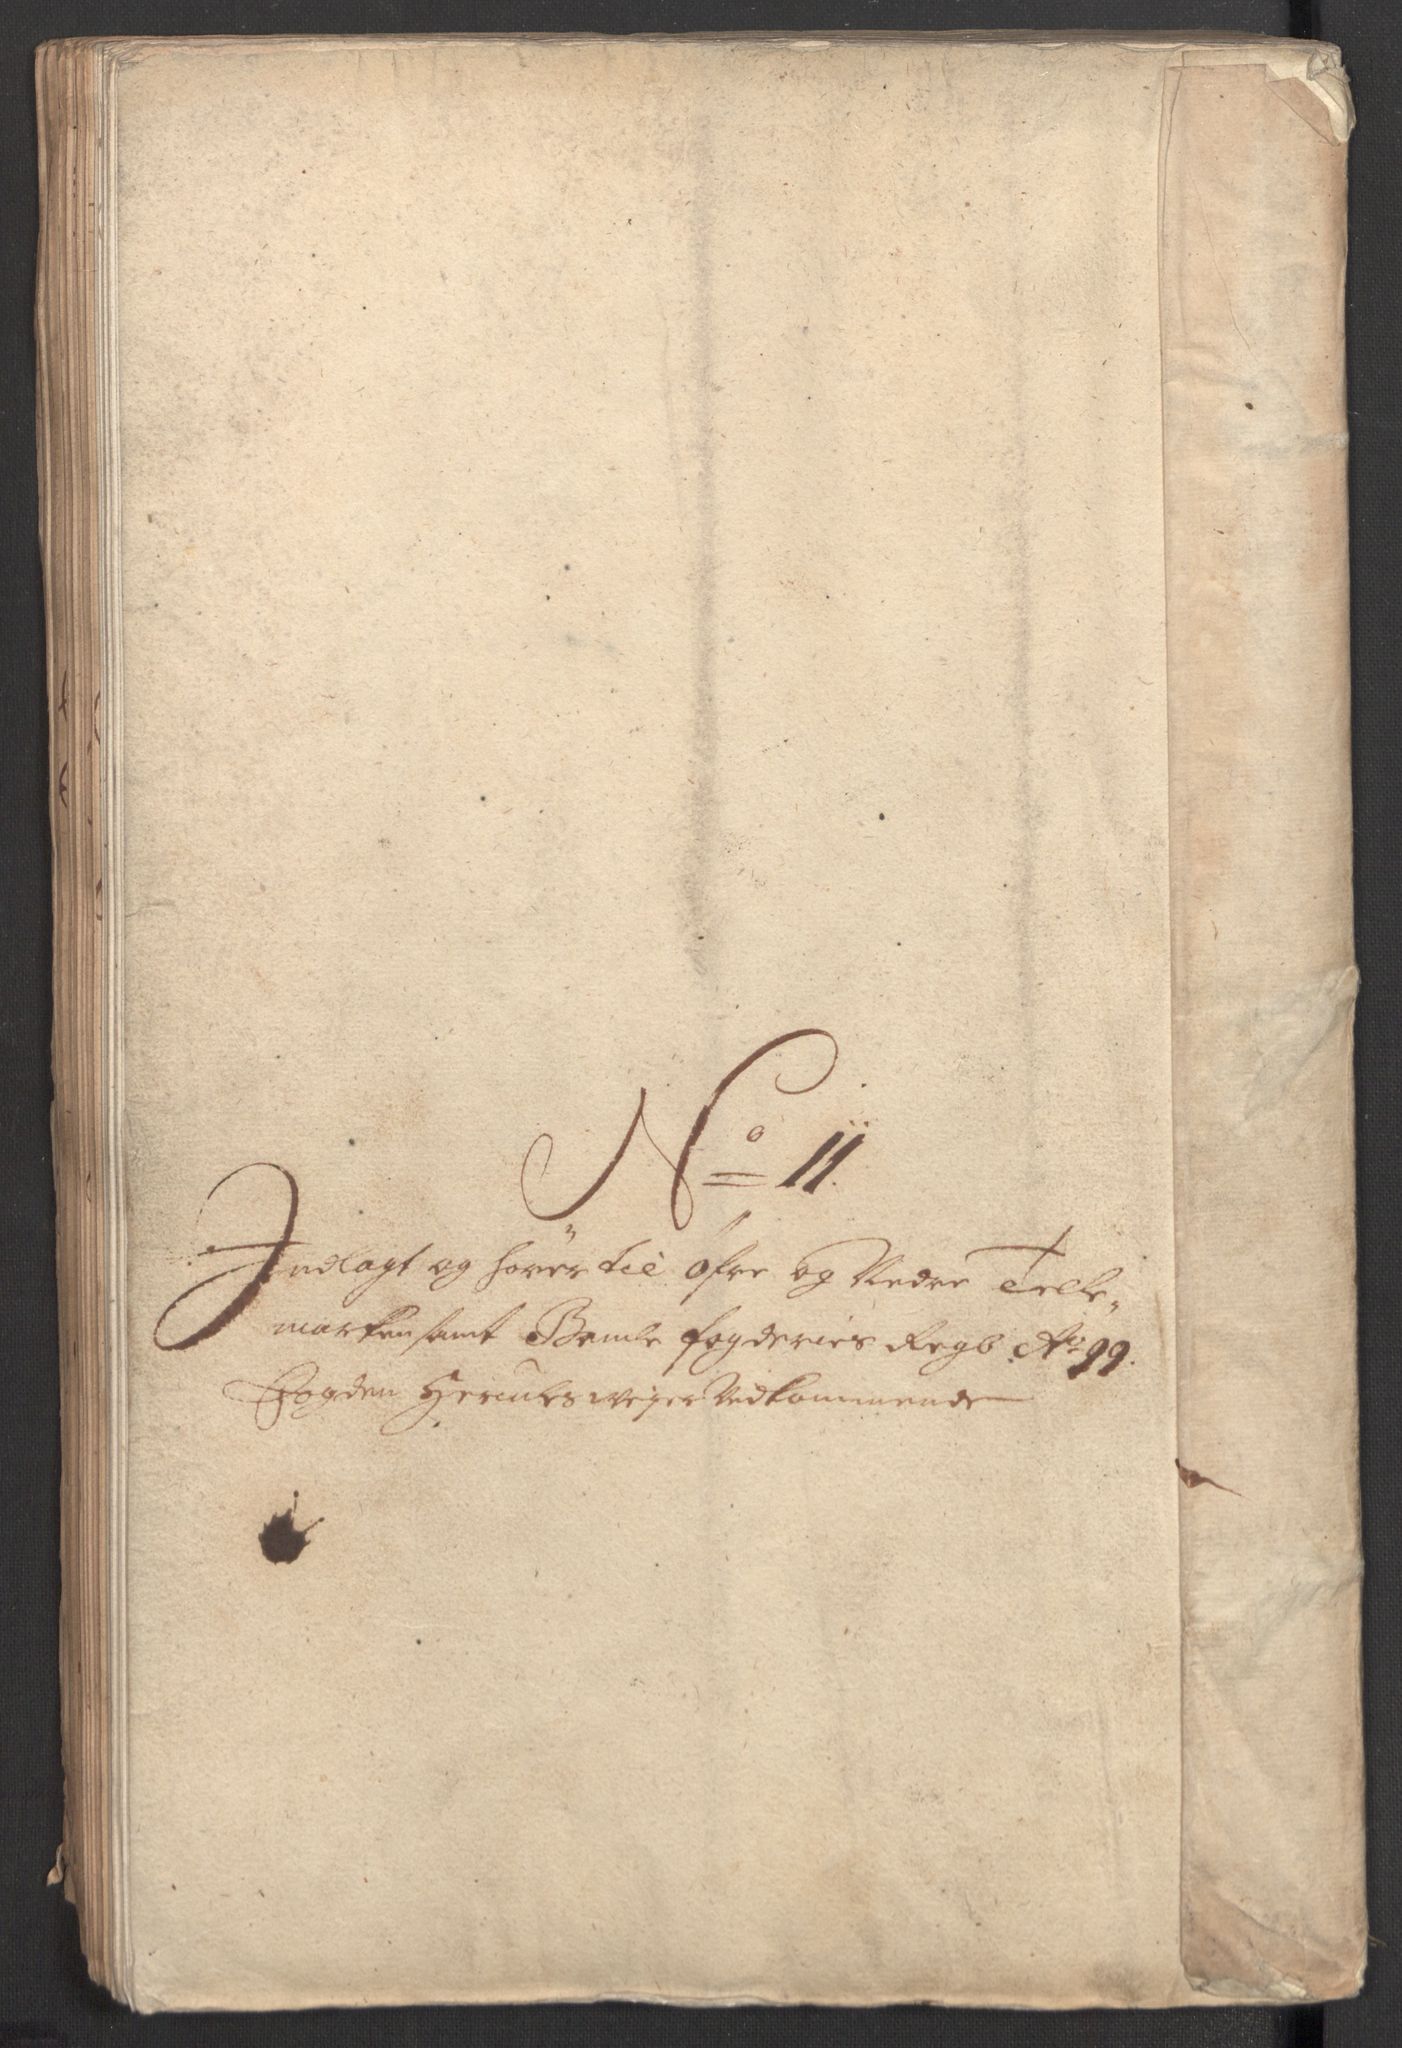 No 11.
Indlagt og hører til Øfre og Nedre Telle-
marken samt Bamle fogderies Regb Ao 99.
Fogden Hercules Weyer Vedkommende